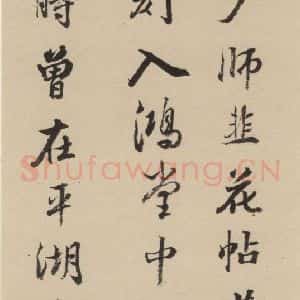 少師韭花帖
刻入鴻堂中
時曾在平湖
Shufawang.CN